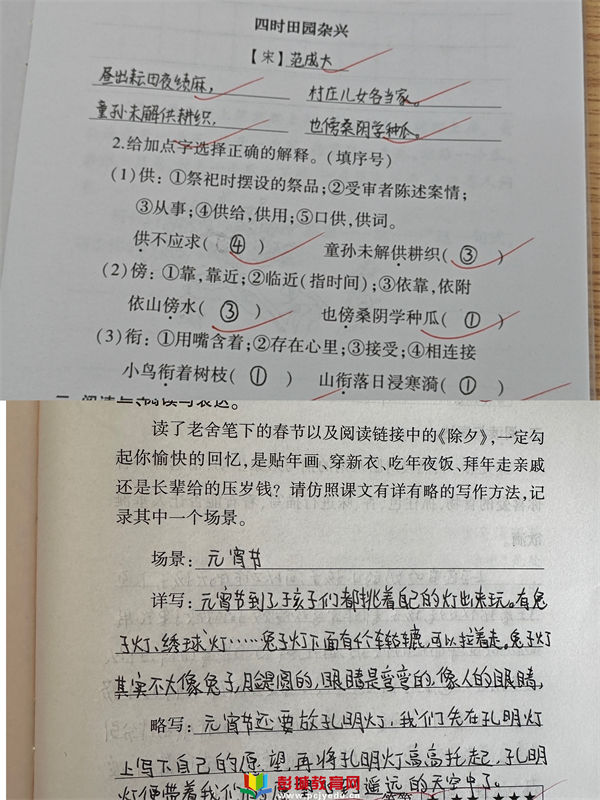 四时田园杂兴
【宋】范成大
昼出耘田夜绩麻, 村庄儿女各当家。
童孙未解供耕织, 也傍桑阴学种瓜。
2.给加点字选择正确的解释。(填序号)
(1)供:①祭祀时摆设的祭品;②受审者陈述案情;
③从事;④供给,供用;⑤口供,供词。
供不应求( ④ ) 童孙未解供耕织( ③ )
(2)傍:①靠,靠近;②临近(指时间);③依靠,依附
依山傍水( ③ ) 也傍桑阴学种瓜( ① )
(3)衔:①用嘴含着;②存在心里;③接受;④相连接
小鸟衔着树枝( ① ) 山衔落日浸寒漪( ① )
读了老舍笔下的春节以及阅读链接中的《除夕》,一定勾
起你愉快的回忆,是贴年画、穿新衣、吃年夜饭、拜年走亲戚
还是长辈给的压岁钱?请仿照课文有详有略的写作方法,记
录其中一个场景。
场景:元宵节
详写:元宵节到了孩子们都挑着自己的灯出来玩。有兔
子灯、绣球灯……兔子灯下面有个车轱辘,可以拉着走。兔子灯
其实不大像兔子,脸是圆的,眼睛是弯弯的,像人的眼睛,
略写:元宵节还要放孔明灯,我们先在孔明灯
上写下自己的愿望,再将孔明灯高高托起,孔明
灯便带着我们的 遥远的天空中了。
彭捷教育网
www.pcjyedu.cn